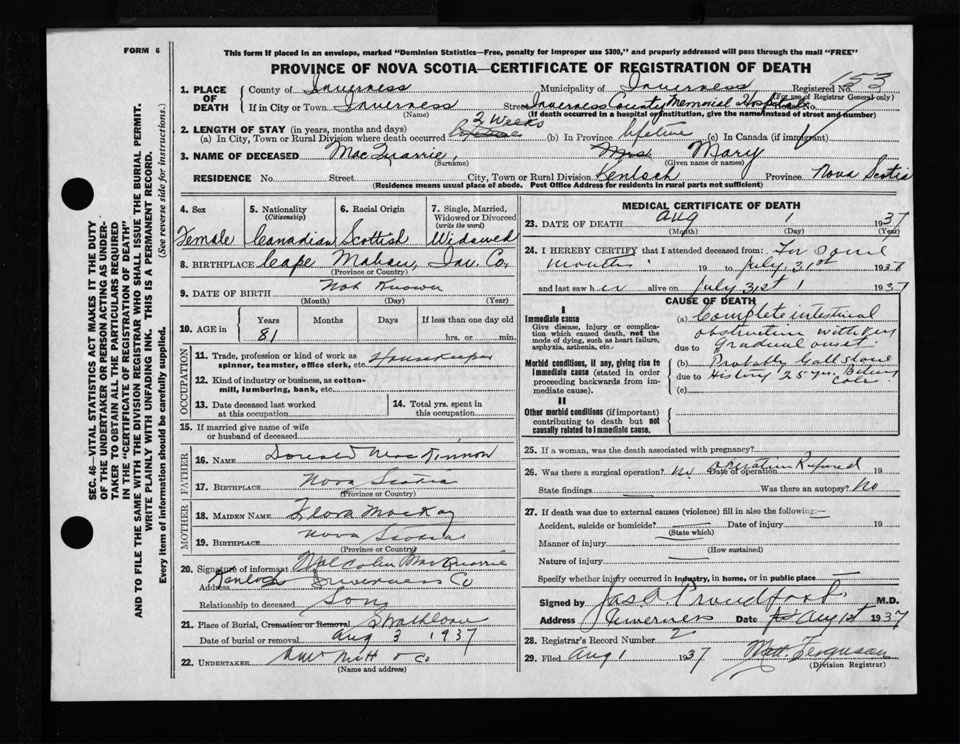 FORM 6
This form if placed in an envelope, marked "Dominion Statistics—Free, penalty for improper use $300," and properly addressed will pass through the mail "FREE"
PROVINCE OF NOVA SCOTIA—CERTIFICATE OF REGISTRATION OF DEATH
SEC. 46—VITAL STATISTICS ACT MAKES IT THE DUTY
OF THE UNDERTAKER OR PERSON ACTING AS UNDER-
TAKER TO OBTAIN ALL THE PARTICULARS REQUIRED
IN THE "CERTIFICATE OF REGISTRATION OF DEATH"
AND TO FILE THE SAME WITH THE DIVISION REGISTRAR WHO SHALL ISSUE THE BURIAL PERMIT.
WRITE PLAINLY WITH UNFADING INK. THIS IS A PERMANENT RECORD.
Every item of information should be carefully supplied. (See reverse side for instructions.)
1. PLACE OF DEATH
County of Inverness Municipality of Inverness Registered No. 153
(For use of Registrar General only)
If in City or Town Inverness Street Inverness County Memorial Hospital House No.
(Name) (If death occurred in a hospital or institution, give the name instead of street and number)
2. LENGTH OF STAY (in years, months and days)
(a) In City, Town or Rural Division where death occurred 3 Weeks (b) In Province lifetime (c) In Canada (if immigrant)
3. NAME OF DECEASED MacQuarrie, Mrs Mary
(Surname) (Given name or names)
RESIDENCE No. Street City, Town or Rural Division Kenloch Province Nova Scotia
(Residence means usual place of abode. Post Office Address for residents in rural parts not sufficient)
4. Sex Female
5. Nationality (Citizenship) Canadian
6. Racial Origin Scottish
7. Single, Married, Widowed or Divorced (write the word) Widowed
8. BIRTHPLACE Cape Mabou, Inv. Co.
(Province or Country)
9. DATE OF BIRTH Not Known
(Month) (Day) (Year)
10. AGE in Years Months Days If less than one day old
81 hrs. or min.
OCCUPATION
11. Trade, profession or kind of work as spinner, teamster, office clerk, etc. Housekeeper
12. Kind of industry or business, as cotton-mill, lumbering, bank, etc.
13. Date deceased last worked at this occupation
14. Total yrs. spent in this occupation
15. If married give name of wife or husband of deceased
FATHER
16. NAME Donald MacKinnon
17. BIRTHPLACE Nova Scotia
(Province or Country)
MOTHER
18. MAIDEN NAME Flora MacKay
19. BIRTHPLACE Nova Scotia
(Province or Country)
20. Signature of informant Malcolm MacQuarrie
Address Kenloch Inverness Co
Relationship to deceased Son
21. Place of Burial, Cremation or Removal Strathlorne
Date of burial or removal Aug 3 1937
22. UNDERTAKER & Co
(Name and address)
MEDICAL CERTIFICATE OF DEATH
23. DATE OF DEATH Aug 1 1937
(Month) (Day) (Year)
24. I HEREBY CERTIFY that I attended deceased from: For some
months 19 to July 31st 1937
and last saw her alive on July 31st 1937
CAUSE OF DEATH
I
Immediate cause
Give disease, injury or complication which caused death, not the mode of dying, such as heart failure, asphyxia, asthenia, etc.
(a) Complete intestinal
obstruction with very
due to Gradual onset.
Morbid conditions, if any, giving rise to immediate cause (stated in order proceeding backwards from immediate cause).
(b) Probably Gall stone
due to History 25 yrs. Biliary
Colic
(c)
II
Other morbid conditions (if important) contributing to death but not causally related to immediate cause.
25. If a woman, was the death associated with pregnancy?
26. Was there a surgical operation? No Date of operation operation Refused 19
State findings Was there an autopsy? No
27. If death was due to external causes (violence) fill in also the following:—
Accident, suicide or homicide? Date of injury 19
(State which)
Manner of injury
(How sustained)
Nature of injury
Specify whether injury occurred in industry, in home, or in public place
Signed by Jas. A. Proudfoot M.D.
Address Inverness Date Aug 1st 1937
28. Registrar's Record Number 2
29. Filed Aug 1 1937 Ferguson
(Division Registrar)